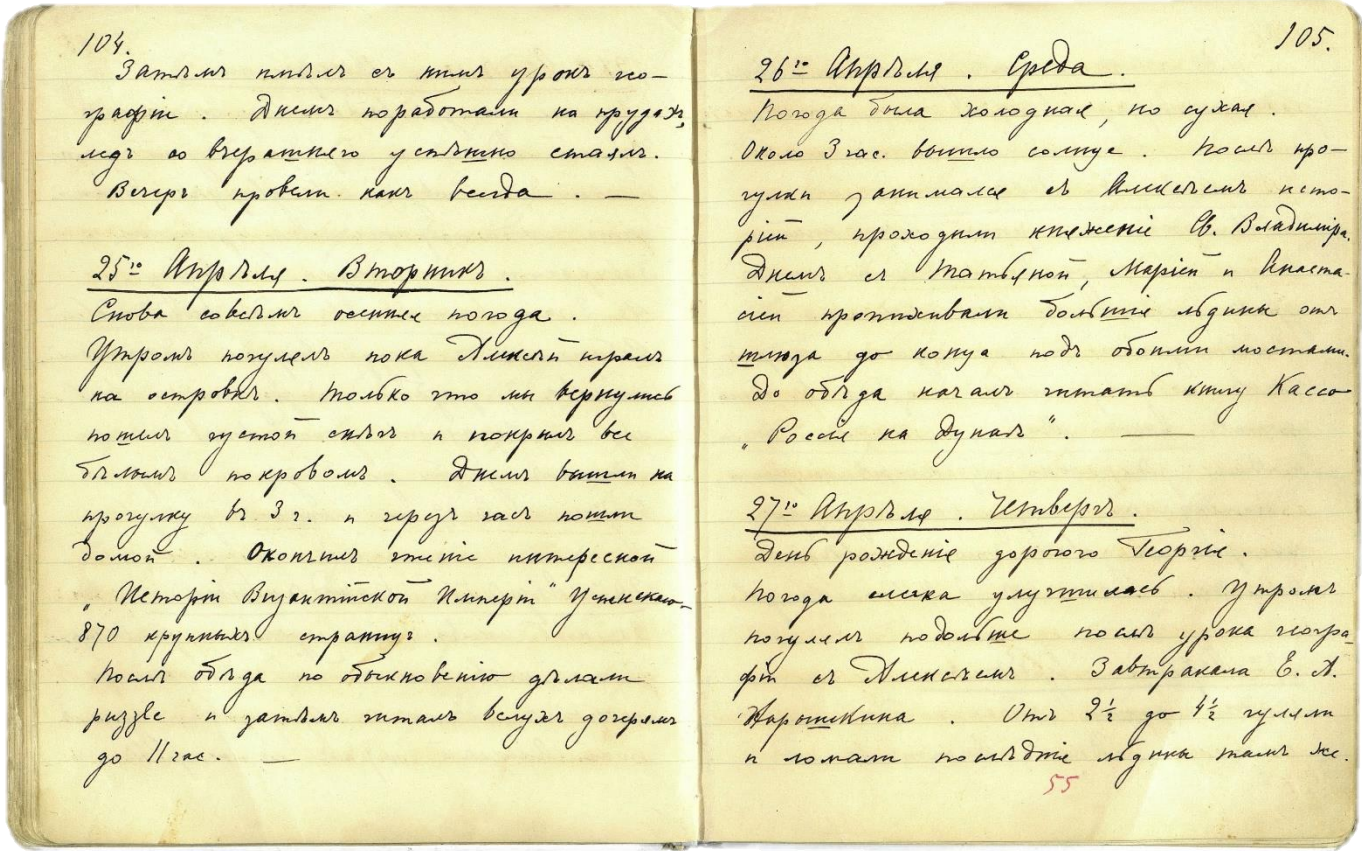 104.
Затѣмъ имѣлъ съ нимъ урокъ гео-
графіи. Днемъ поработали на прудахъ,
ледъ со вчерашнего успѣшно стаялъ.
Вечеръ провели какъ всегда. —
25го Апрѣля. Вторникъ.
Снова совсѣмъ осенняя погода.
Утромъ погулялъ пока Алексѣй игралъ
на островкѣ. Только что мы вернулись
пошелъ густой снѣгъ и покрылъ все
бѣлымъ покровомъ. Днемъ вышли на
прогулку въ 3 г. и черезъ часъ пошли
домой. Окончилъ чтеніе интересной
„Исторіи Византійской Имперіи" Успенскаго —
870 крупныхъ страницъ.
Послѣ обѣда по обыкновенію дѣлали
puzzle и затѣмъ читалъ вслухъ дочерямъ
до 11 час. —
105.
26го Апрѣля. Среда.
Погода была холодная, но сухая.
Около 3 час. вышло солнце. Послѣ про-
гулки занимался съ Алексѣемъ исто-
ріей, проходили княженіе Св. Владиміра.
Днемъ съ Татьяной, Маріей и Анаста-
сіей пропихивали большіе льдины отъ
шлюза до конца подъ обоими мостами.
До обѣда началъ читать книгу Кассо
„Россія на Дунаѣ". —
27го Апрѣля. Четвергъ.
День рожденія дорогого Георгія.
Погода слегка улучшилась. Утромъ
погулялъ подольше послѣ урока геогра-
фіи съ Алексѣемъ. Завтракала Е. А.
Нарышкина. Отъ 2½ до 4½ гуляли
и ломали послѣдніе льдины тамъ же.
55